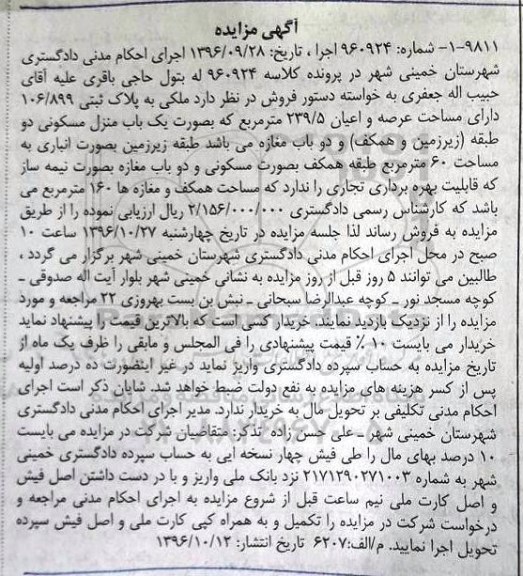 آگهی مزایده
۹۸۱۱-۱- شماره: ۹۶۰۹۲۴ اجرا ، تاریخ: ۱۳۹۶/۰۹/۲۸ اجرای احکام مدنی دادگستری
شهرستان خمینی شهر در پرونده کلاسه ۹۶۰۹۲۴ له بتول حاجی باقری علیه آقای
حبیب اله جعفری به خواسته دستور فروش در نظر دارد ملکی به پلاک ثبتی ۱۰۶/۸۹۹
دارای مساحت عرصه و اعیان ۲۳۹/۵ مترمربع که بصورت یک باب منزل مسکونی دو
طبقه (زیرزمین و همکف) و دو باب مغازه می باشد طبقه زیرزمین بصورت انباری به
مساحت ۶۰ مترمربع طبقه همکف بصورت مسکونی و دو باب مغازه بصورت نیمه ساز
که قابلیت بهره برداری تجاری را ندارد که مساحت همکف و مغازه ها ۱۶۰ مترمربع می
باشد که کارشناس رسمی دادگستری ۲/۱۵۶/۰۰۰/۰۰۰ ریال ارزیابی نموده را از طریق
مزایده به فروش رساند لذا جلسه مزایده در تاریخ چهارشنبه ۱۳۹۶/۱۰/۲۷ ساعت ۱۰
صبح در محل اجرای احکام مدنی دادگستری شهرستان خمینی شهر برگزار می گردد ،
طالبین می توانند ۵ روز قبل از روز مزایده به نشانی خمینی شهر بلوار آیت اله صدوقی ـ
کوچه مسجد نور ـ کوچه عبدالرضا سبحانی ـ نبش بن بست بهروزی ۲۲ مراجعه و مورد
مزایده را از نزدیک بازدید نمایند. خریدار کسی است که بالاترین قیمت را پیشنهاد نماید
خریدار می بایست ۱۰ ٪ قیمت پیشنهادی را فی المجلس و مابقی را ظرف یک ماه از
تاریخ مزایده به حساب سپرده دادگستری واریز نماید در غیر اینصورت ده درصد اولیه
پس از کسر هزینه های مزایده به نفع دولت ضبط خواهد شد. شایان ذکر است اجرای
احکام مدنی تکلیفی بر تحویل مال به خریدار ندارد. مدیر اجرای احکام مدنی دادگستری
شهرستان خمینی شهر ـ علی حسن زاده تذکر: متقاضیان شرکت در مزایده می بایست
۱۰ درصد بهای مال را طی فیش چهار نسخه ایی به حساب سپرده دادگستری خمینی
شهر به شماره ۲۱۷۱۲۹۰۲۷۱۰۰۳ نزد بانک ملی واریز و با در دست داشتن اصل فیش
و اصل کارت ملی نیم ساعت قبل از شروع مزایده به اجرای احکام مدنی مراجعه و
درخواست شرکت در مزایده را تکمیل و به همراه کپی کارت ملی و اصل فیش سپرده
تحویل اجرا نمایید. م/الف:۶۲۰۷ تاریخ انتشار: ۱۳۹۶/۱۰/۱۲